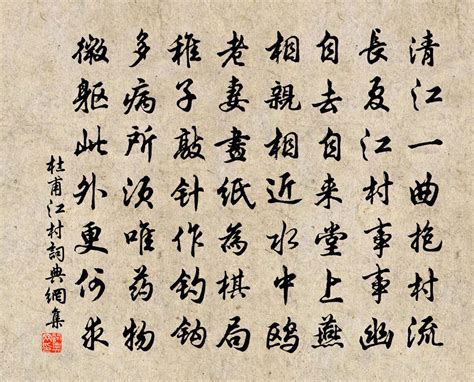 清江一曲抱村流
長夏江村事事幽
自去自来堂上燕
相親相近水中鸥
老妻畫紙為棋局
稚子敲針作钓钩
多病所须唯药物
微躯此外更何求
杜甫江村詞典網集